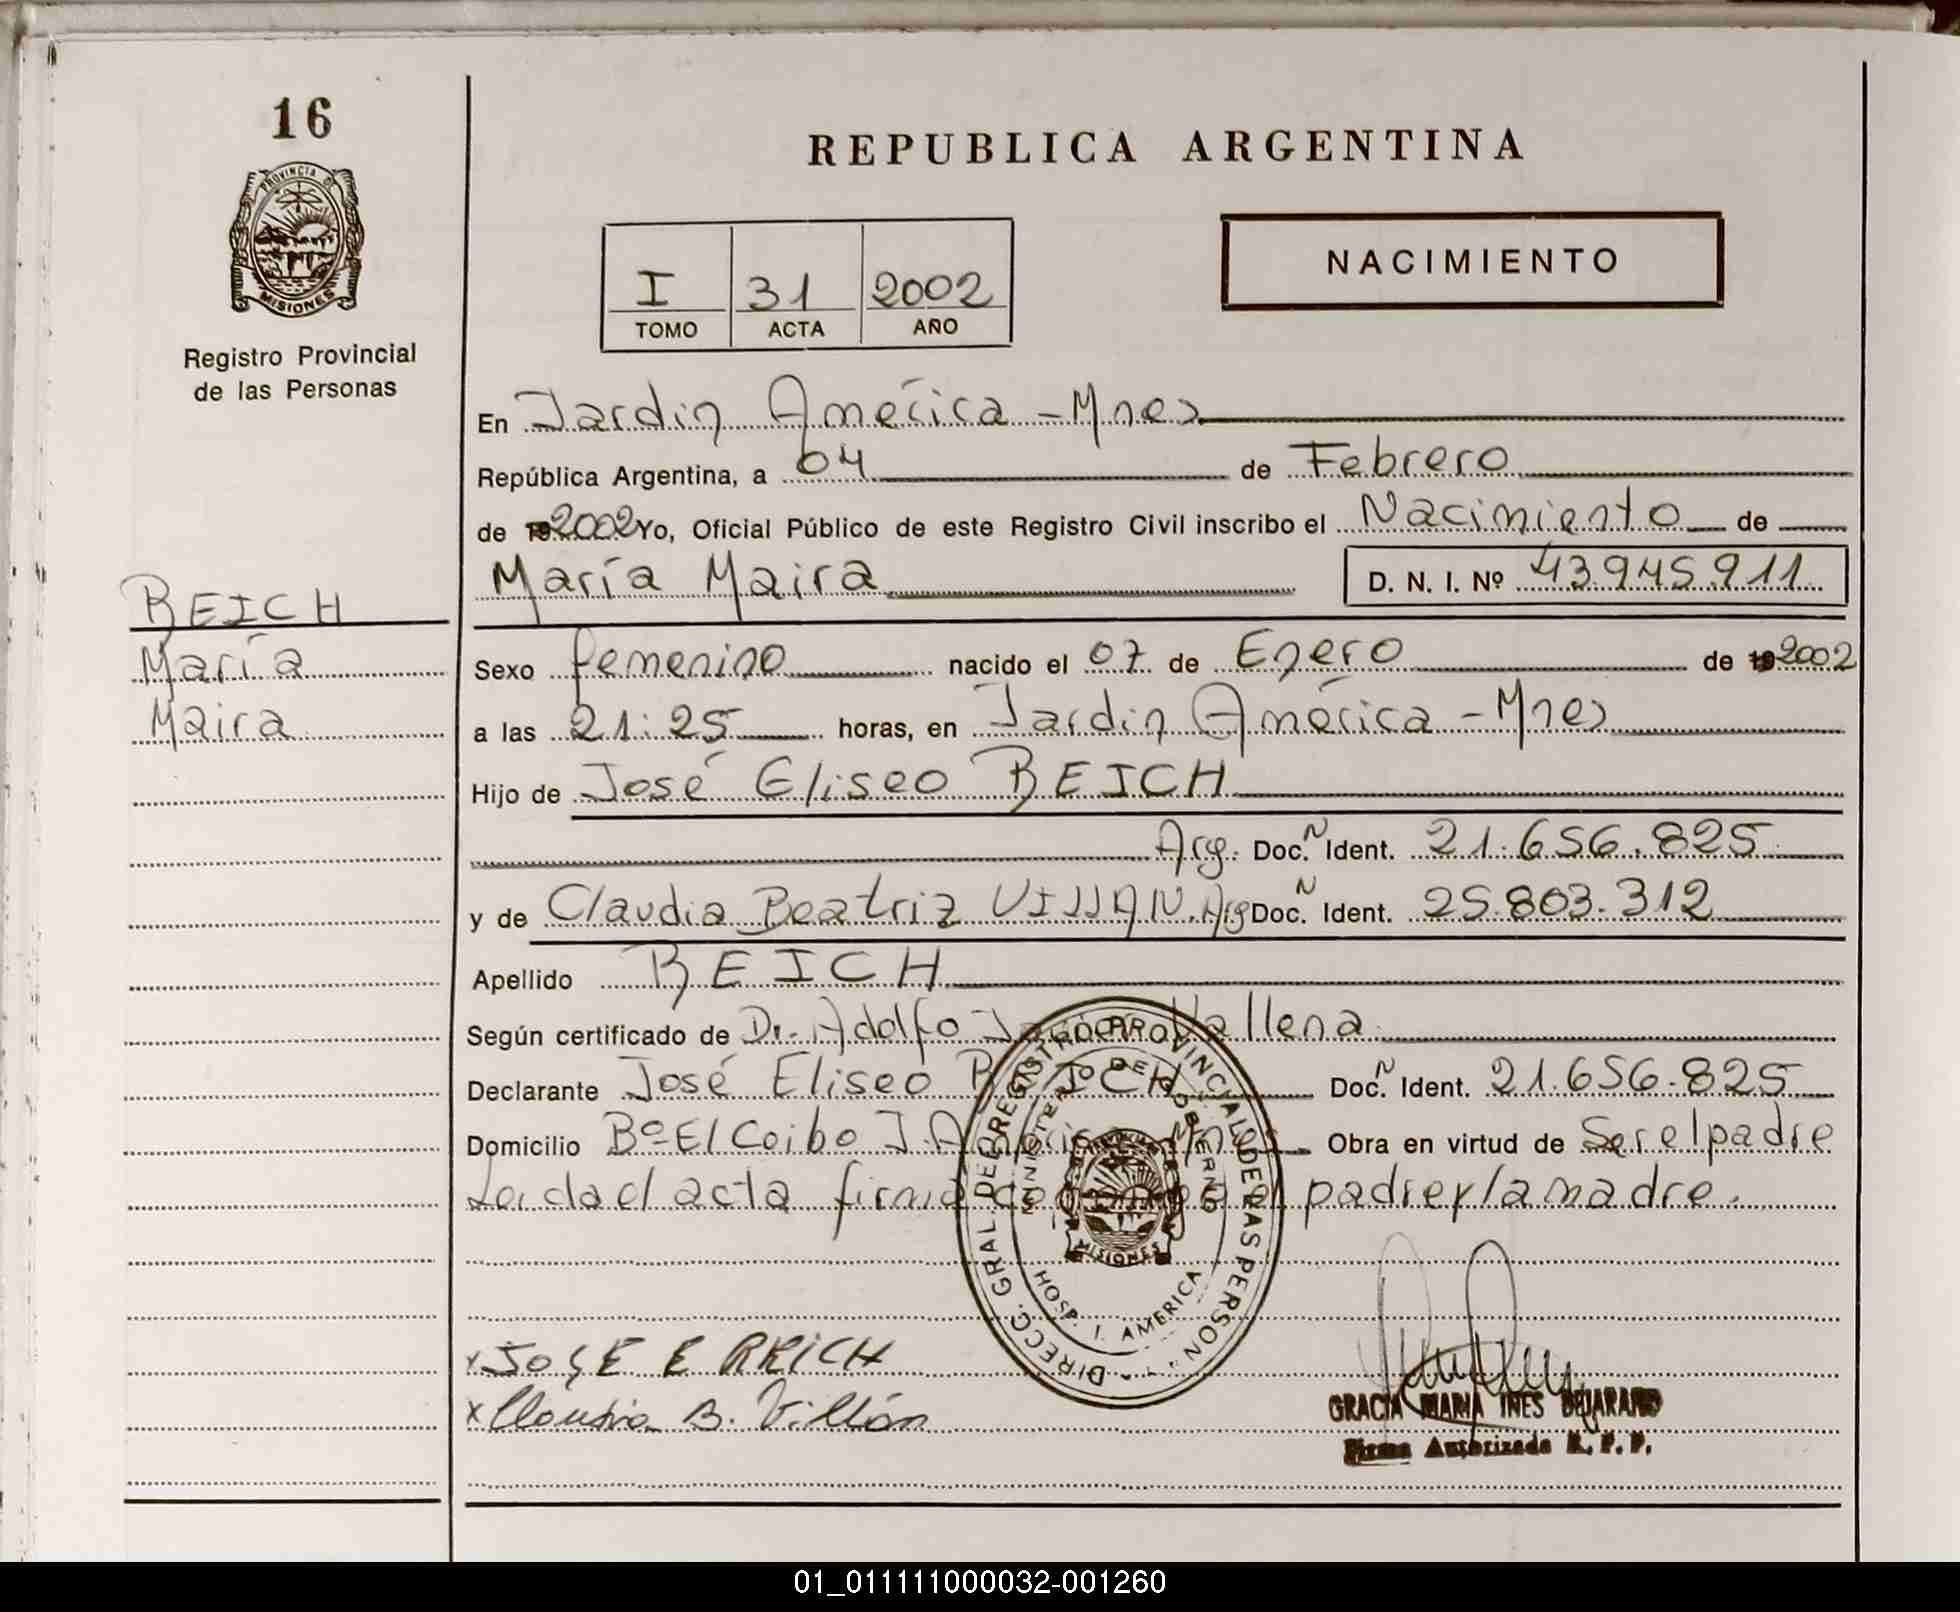 16
REPUBLICA ARGENTINA
PROVINCIA DE
MISIONES
NACIMIENTO
I 31 2002
TOMO ACTA AÑO
Registro Provincial
de las Personas
En Jardin América - Mnes
República Argentina, a 04 de Febrero
de 19 2002 Yo, Oficial Público de este Registro Civil inscribo el Nacimiento de
María Maira D. N. I. Nº 43.945.911
REICH
María
Maira
Sexo femenino nacido el 07 de Enero de 19 2002
a las 21:25 horas, en Jardin América - Mnes
Hijo de José Eliseo REICH
Arg. Doc. N Ident. 21.656.825
y de Claudia Beatriz VILLAN. Arg Doc. N Ident. 25.803.312
Apellido REICH
Según certificado de Dr. Adolfo Vallena
Declarante José Eliseo REICH Doc. N Ident. 21.656.825
Domicilio Bº El Ceibo J. América Mnes Obra en virtud de Ser el padre
Leida el acta firma padre y la madre.
DIRECC. GRAL DEL REGISTRO PROVINCIAL DE LAS PERSONAS
MINISTERIO DE GOBIERNO
MISIONES
HOSP. J. AMERICA
x JOSE E REICH
x Claudia B. Villán
GRACIA MARIA INES BEJARANO
Firma Autorizada R. P. P.
01_011111000032-001260